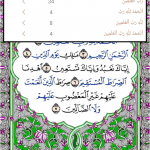 رب العالمين
الحمد لله رب
الحمد لله رب العالمين
الرَّحْمَٰنِ الرَّحِيمِ مَٰلِكِ يَوْمِ الدِّينِ
إِيَّاكَ نَعْبُدُ وَإِيَّاكَ نَسْتَعِينُ اهْدِنَا
الصِّرَاطَ الْمُسْتَقِيمَ صِرَاطَ الَّذِينَ أَنْعَمْتَ
عَلَيْهِمْ غَيْرِ الْمَغْضُوبِ عَلَيْهِمْ
وَلَا الضَّالِّينَ